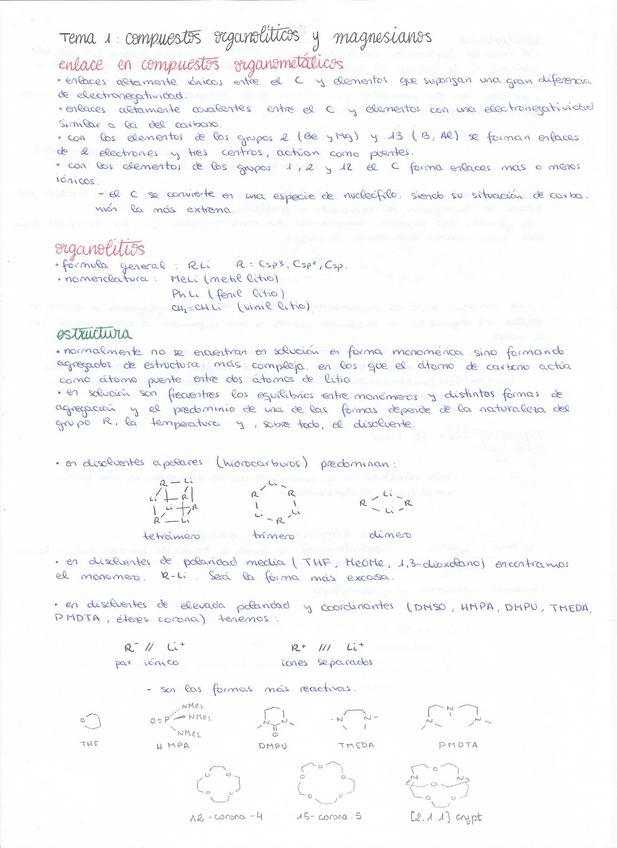 Tema 1: compuestos organolíticos y magnesianos
enlace en compuestos organometálicos
• enlaces altamente iónicos entre el C y elementos que supongan una gran diferencia
de electronegatividad.
• enlaces altamente covalentes entre el C y elementos con una electronegatividad
similar a la del carbono.
• con los elementos de los grupos 2 (Be y Mg) y 13 (B, Al) se forman enlaces
de 2 electrones y tres centros, actúan como puentes.
• con los elementos de los grupos 1, 2 y 12 el C forma enlaces más o menos
iónicos.
- el C se convierte en una especie de nucleófilo, siendo su situación de carba-
nión la más extrema.
organolitios
• fórmula general: RLi R = Csp3, Csp2, Csp.
• nomenclatura: MeLi (metil litio)
PhLi (fenil litio)
CH2=CHLi (vinil litio)
estructura
• normalmente no se encuentran en solución en forma monomérica sino formando
agregados de estructura más compleja, en los que el átomo de carbono actúa
como átomo puente entre dos átomos de litio
• en solución son frecuentes los equilibrios entre monómeros y distintas formas de
agregación y el predominio de una de las formas depende de la naturaleza del
grupo R, la temperatura y, sobre todo, el disolvente.
• en disolventes apolares (hidrocarburos) predominan:
R - Li
Li R
R Li
Li R
R - Li
R Li R
Li Li
R
Li
R R
Li
tetrámero trímero dímero
• en disolventes de polaridad media (THF, MeOMe, 1,3-dioxolano) encontramos
el monómero. R-Li. Será la forma más escasa.
• en disolventes de elevada polaridad y coordinantes (DMSO, HMPA, DMPU, TMEDA,
PMDTA, éteres corona) tenemos:
R- // Li+ R+ /// Li+
par iónico iones separados
- son las formas más reactivas.
O O=P NMe2 NMe2 NMe2 N N O N N N N N
THF HMPA DMPU TMEDA PMDTA
12-corona-4 15-corona-5 [2.1.1] crypt